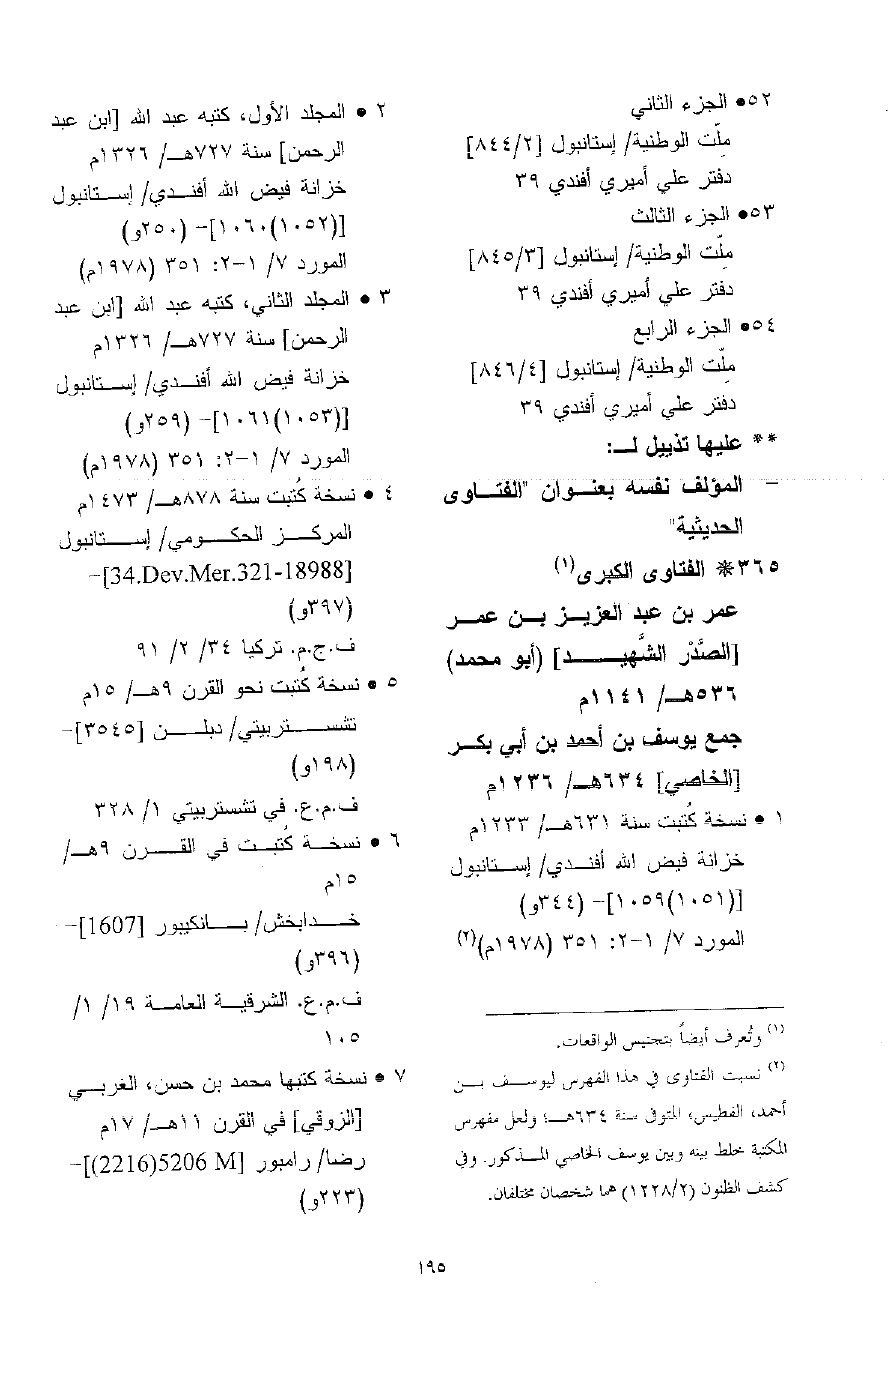 ٥٢• الجزء الثاني
ملّت الوطنية/ إستانبول [٨٤٤/٢]
دفتر علي أميري أفندي ٣٩
٥٣• الجزء الثالث
ملّت الوطنية/ إستانبول [٨٤٥/٣]
دفتر علي أميري أفندي ٣٩
٥٤• الجزء الرابع
ملّت الوطنية/ إستانبول [٨٤٦/٤]
دفتر علي أميري أفندي ٣٩
** عليها تذييل لـ:
- المؤلف نفسه بعنوان "الفتاوى
الحديثية"
٣٦٥* الفتاوى الكبرى(١)
عمر بن عبد العزيز بن عمر
[الصَّدْر الشَّهيد] (أبو محمد)
٥٣٦هـ/ ١١٤١م
جمع يوسف بن أحمد بن أبي بكر
[الخاصي] ٦٣٤هـ/ ١٢٣٦م
١ • نسخة كُتبت سنة ٦٣١هـ/ ١٢٣٣م
خزانة فيض الله أفندي/ إستانبول
[(١٠٥١)١٠٥٩]- (٣٤٤و)
المورد ٧/ ١-٢: ٣٥١ (١٩٧٨م)(٢)
(١) وتُعرف أيضاً بتجنيس الواقعات.
(٢) نسبت الفتاوى في هذا الفهرس ليوسف بن
أحمد، الفطيس، المتوفى سنة ٦٣٤هـ؛ ولعل مفهرس
المكتبة خلط بينه وبين يوسف الخاصي المذكور. وفي
كشف الظنون (١٢٢٨/٢) هما شخصان مختلفان.
٢ • المجلد الأول، كتبه عبد الله [ابن عبد
الرحمن] سنة ٧٢٧هـ/ ١٣٢٦م
خزانة فيض الله أفندي/ إستانبول
[(١٠٥٢)١٠٦٠]- (٢٥٠و)
المورد ٧/ ١-٢: ٣٥١ (١٩٧٨م)
٣ • المجلد الثاني، كتبه عبد الله [ابن عبد
الرحمن] سنة ٧٢٧هـ/ ١٣٢٦م
خزانة فيض الله أفندي/ إستانبول
[(١٠٥٣)١٠٦١]- (٢٥٩و)
المورد ٧/ ١-٢: ٣٥١ (١٩٧٨م)
٤ • نسخة كُتبت سنة ٨٧٨هـ/ ١٤٧٣م
المركز الحكومي/ إستانبول
[34.Dev.Mer.321-18988]-
(٣٩٧و)
ف.ج.م. تركيا ٣٤/ ٢/ ٩١
٥ • نسخة كُتبت نحو القرن ٩هـ/ ١٥م
تشستربيتي/ دبلن [٣٥٤٥]-
(١٩٨و)
ف.م.ع. في تشستربيتي ١/ ٣٢٨
٦ • نسخة كُتبت في القرن ٩هـ/
١٥م
خدابخش/ بانكيبور [1607]-
(٣٩٦و)
ف.م.ع. الشرقية العامة ١٩/ ١/
١٠٥
٧ • نسخة كتبها محمد بن حسن، الغربي
[الزوقي] في القرن ١١هـ/ ١٧م
رضا/ رامبور [5206 M(2216)]-
(٢٢٣و)
١٩٥